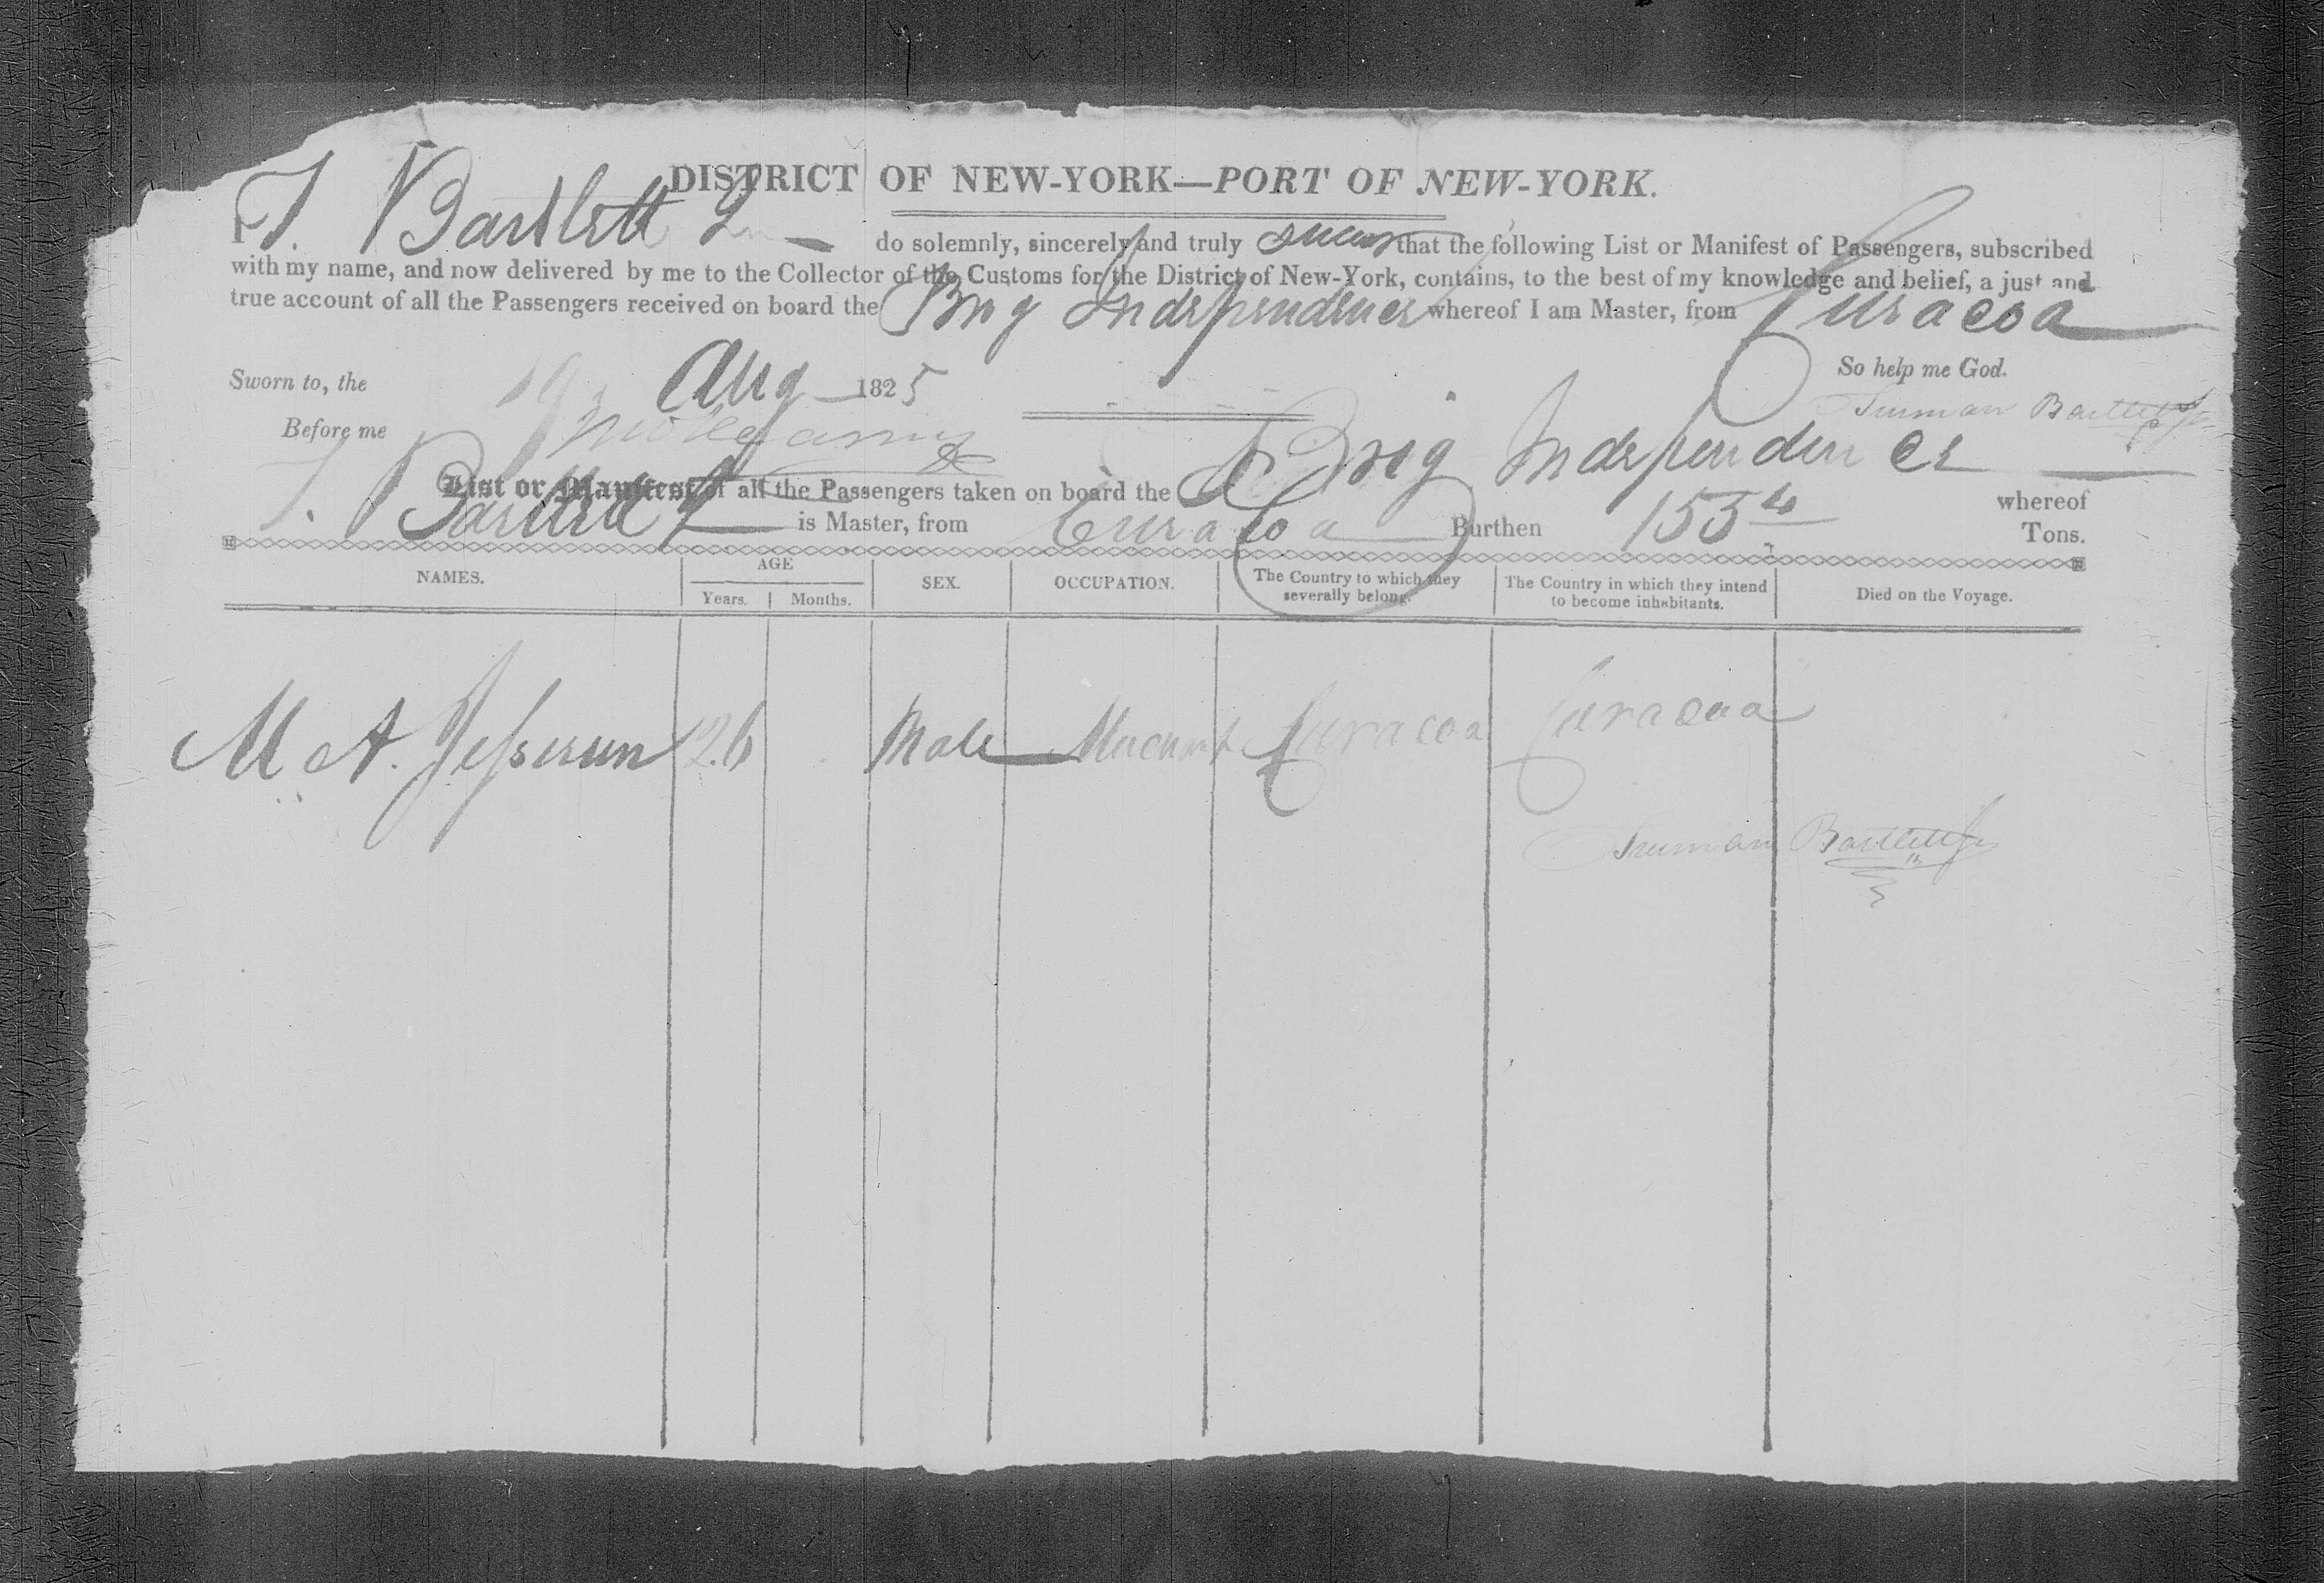 DISTRICT OF NEW-YORK—PORT OF NEW-YORK.
I T. Bartlett Jr do solemnly, sincerely and truly swear that the following List or Manifest of Passengers, subscribed
with my name, and now delivered by me to the Collector of the Customs for the District of New-York, contains, to the best of my knowledge and belief, a just and
true account of all the Passengers received on board the Brig Independence whereof I am Master, from Curacoa
So help me God.
Sworn to, the 19 Aug 1825
Truman Bartlett Jr
Before me
List or Manifest of all the Passengers taken on board the Brig Independence whereof
T. Bartlett Jr is Master, from Curacoa Burthen 153 4 Tons.
NAMES. AGE Years. Months. SEX. OCCUPATION. The Country to which they severally belong. The Country in which they intend to become inhabitants. Died on the Voyage.
M A. Jesserun 26 Male Merchant Curacoa Curacoa
Truman Bartlett Jr